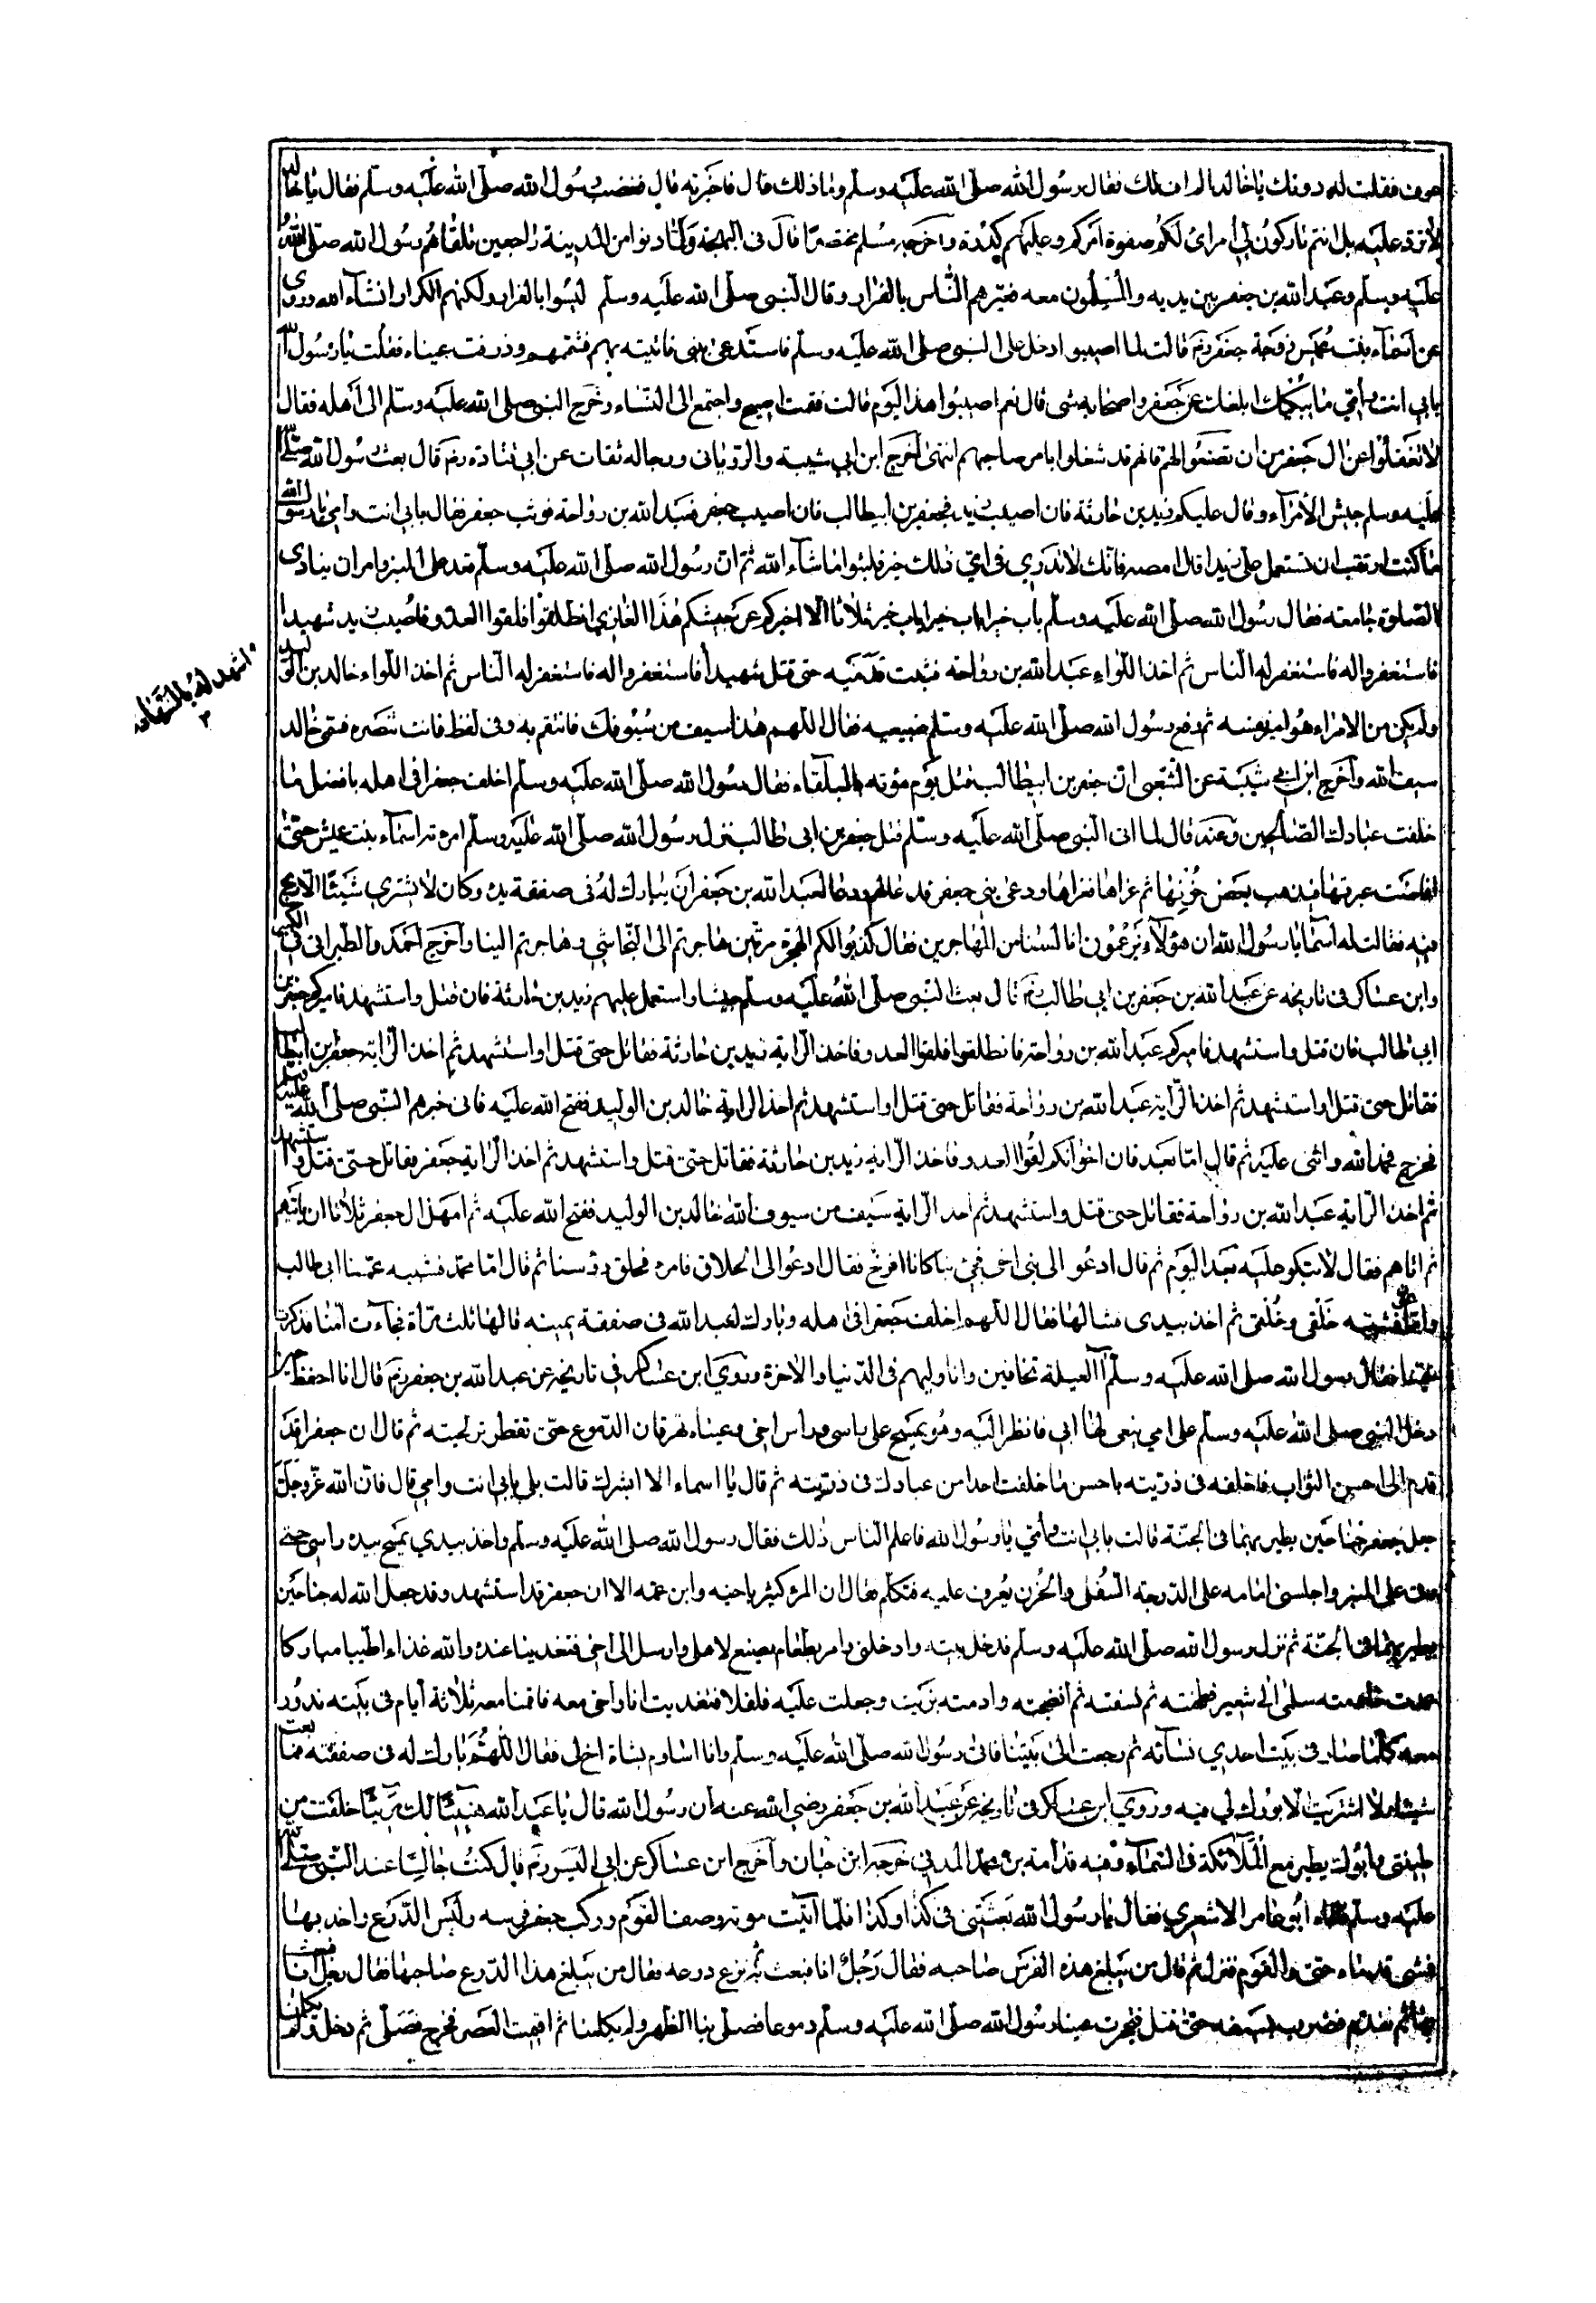 عوف فقلت له دونك يا خالد الم اف لك فقال رسول الله صلى الله عليه وسلم وما ذلك قال فاخبرته قال فغضب رسول الله صلى الله عليه وسلم فقال يا خالد
لا ترد عليه هل انتم تاركون لي امرائى لكم صفوة امرهم وعليهم كدره واخرجه مسلم مختصرا قال في البهجة ولما دنوا من المدينة راجعين تلقاهم رسول الله صلى الله
عليه وسلم وعبد الله بن جعفر بين يديه والمسلمون معه فعيّرهم الناس بالفرار وقال النبي صلى الله عليه وسلم ليسوا بالفرار ولكنهم الكرار انشآء الله وروى
عن اسمآء بنت عميس زوجة جعفر رضه قالت لما اصيبوا دخل على النبي صلى الله عليه وسلم فاستدعى بنى فاتيته بهم فشمهم وذرفت عيناه فقلت يا رسول الله
بابي انت وامي ما يبكيك ابلغك عن جعفر واصحابه شى قال نعم اصيبوا هذا اليوم قالت فقمت اصيح واجتمع الى النساء وخرج النبي صلى الله عليه وسلم الى اهله فقال
لا تغفلوا عن ال جعفر من ان تصنعوا لهم فانهم قد شغلوا بامر صاحبهم انتهى اخرج ابن ابي شيبة والرويانى ورجاله ثقات عن ابي قتادة رضه قال بعث رسول الله صلى الله
عليه وسلم جيش الامرآء وقال عليكم زيد بن حارثة فان اصيب زيد فجعفر بن ابيطالب فان اصيب جعفر فعبد الله بن رواحة فوثب جعفر فقال بابي انت وامي يا رسول الله
ما كنت ارتقب ان تستعمل على زيدا قال امضه فانك لا تدري في اي ذلك خير فلبثوا ما شآء الله ثم ان رسول الله صلى الله عليه وسلم قعد على المنبر وامر ان ينادى
الصلوة جامعة فقال رسول الله صلى الله عليه وسلم باب خير باب خير باب خير ثلاثا الا اخبركم عن جيشكم هذا الغازي انطلقوا فلقوا العدو فاصيب زيد شهيدا
فاستغفروا له فاستغفر له الناس ثم اخذ اللوآء عبد الله بن رواحة فثبت قدميه حتى قتل شهيدا فاستغفروا له فاستغفر له الناس ثم اخذ اللواء خالد بن الوليد
اشهد له بالشهادة ٣
ولم يكن من الامراء هو امر نفسه ثم رفع رسول الله صلى الله عليه وسلم ضبعيه فقال اللهم هذا سيف من سيوفك فانتقم به وفى لفظ فانت تنصره فسمى خالد
سيف الله واخرج ابن ابي شيبة عن الشعبى ان جعفر بن ابيطالب قتل يوم مؤته بالبلقاء فقال رسول الله صلى الله عليه وسلم اخلف جعفرا في اهله بافضل ما
خلفت عبادك الصالحين وعنه قال لما اتى النبي صلى الله عليه وسلم قتل جعفر بن ابى طالب نزل رسول الله صلى الله عليه وسلم امرءته اسمآء بنت عميس حتى
افاضت عبرتها فذهب بعض حزنها ثم عزاها ودعى بنى جعفر فدعا لهم ودعا لعبد الله بن جعفر ان يبارك له فى صفقة يده وكان لا يشتري شيئا الا ربح
فيه فقالت له اسما يا رسول الله ان هؤلآء يزعمون انا لسنا من المهاجرين فقال كذبوا لكم الهجرة مرتين هاجرتم الى النجاشي وهاجرتم الينا واخرج احمد والطبرانى فى الكبير
وابن عساكر فى تاريخه عن عبد الله بن جعفر بن ابي طالب رضه قال بعث النبي صلى الله عليه وسلم جيشا واستعمل عليهم زيد بن حارثة فان قتل واستشهد فاميركم جعفر بن
ابي طالب فان قتل واستشهد فاميركم عبد الله بن رواحة فانطلقوا فلقوا العدو فاخذ الراية زيد بن حارثة فقاتل حتى قتل واستشهد ثم اخذ الراية جعفر بن ابيطالب
فقاتل حتى قتل واستشهد ثم اخذ الراية عبد الله بن رواحة فقاتل حتى قتل واستشهد ثم اخذ الراية خالد بن الوليد ففتح الله عليه فاتى خبرهم النبي صلى الله عليه وسلم
فخرج فحمد الله واثنى عليه ثم قال اما بعد فان اخوانكم لقوا العدو فاخذ الراية زيد بن حارثة فقاتل حتى قتل واستشهد ثم اخذ الراية جعفر فقاتل حتى قتل واستشهد
ثم اخذ الراية عبد الله بن رواحة فقاتل حتى قتل واستشهد ثم اخذ الراية سيف من سيوف الله خالد بن الوليد ففتح الله عليه ثم امهل ال جعفر ثلاثا ان ياتيهم
ثم اتاهم فقال لا تبكو عليه بعد اليوم ثم قال ادعوا الى بنى اخى فجئ بنا كانا افرخ فقال ادعوا الى الحلاق فامره فحلق رؤسنا ثم قال اما محمد فشبيه عمنا ابى طالب
واما عون فشبيه خلقى وخلقى ثم اخذ بيدى فقال اللهم اخلف جعفرا فى اهله وبارك لعبد الله فى صفقة يمينه قالها ثلث مرآة فجآءت امنا فذكرت
يتمنا فقال رسول الله صلى الله عليه وسلم العيلة تخافين وانا وليهم فى الدنيا والاخرة وروى ابن عساكر فى تاريخه عن عبد الله بن جعفر رضه قال انا احفظ حين
دخل النبي صلى الله عليه وسلم على امي ينعى لها ابي فانظر اليه وهو يمسح على راسى وراس اخى وعيناه تهرقان الدموع حتى تقطر تر لحيته ثم قال ان جعفرا قد
قدم الى احسن الثواب فاخلفه فى ذريته باحسن ما خلفت احدا من عبادك فى ذريته ثم قال يا اسماء الا ابشرك قالت بلى بابي انت وامي قال فان الله عز وجل
جعل لجعفر جناحين يطير بهما فى الجنة قالت بابي انت وامي يا رسول الله فاعلم الناس ذلك فقال رسول الله صلى الله عليه وسلم واخذ بيدي يمسح بيده راسى حتى
رقى على المنبر واجلسنى امامه على الدرجة السفلى والحزن يعرف عليه فتكلم فقال ان المرء كثير باخيه وابن عمه الا ان جعفر قد استشهد وقد جعل الله له جناحين
يطير بهما فى الجنة ثم نزل رسول الله صلى الله عليه وسلم فدخل بيته وادخلنى وامر بطعام يصنع لاهلى وارسل الى اخى فتغدينا عنده والله غذاء اطيبا مباركا
عمدت خادمته سلمى الى شعير فطحنته ثم نسفته ثم انضجته وادمته بزيت وجعلت عليه فلفلا فتغديت انا واخى معه فاقمنا معه ثلاثة ايام فى بيته ندور
معه كلما صار فى بيت احدي نسآئه ثم رجعت الى بيتنا فاتى رسول الله صلى الله عليه وسلم وانا اساوم بشاة اخ لى فقال اللهم بارك له فى صفقته فما بعت
شيئا ولا اشتريت الا بورك لى فيه وروي ابن عساكر فى تاريخه عن عبد الله بن جعفر رضي الله عنه ان رسول الله قال يا عبد الله هنيئا لك مريئا خلقت من
طينتى وابوك يطير مع الملآئكة فى السمآء وفيه قدامة بن محمد المدنى خرجه ابن حبان واخرج ابن عساكر عن ابي اليسر رضه قال كنت جالسا عند النبي صلى الله
عليه وسلم ابو عامر الاشعري فقال يا رسول الله بعثتنى فى كذا وكذا فلما اتيت موته وصف القوم وركب جعفر فرسه ولبس الدرع واخذ
فمشى حتى القوم فنزل ثم قال من يبلغ هذه الفرس صاحبه فقال رجل انا فبعث به ثم نزع درعه فقال من يبلغ هذا الدرع صاحبها فقال رجل انا فبعث
بها ثم تقدم فضرب بسيفه حتى قتل عينا رسول الله صلى الله عليه وسلم دموعا فصلى بنا الظهر ولم يكلمنا ثم اقيمت العصر فخرج فصلى ثم دخل ولم يكلمنا